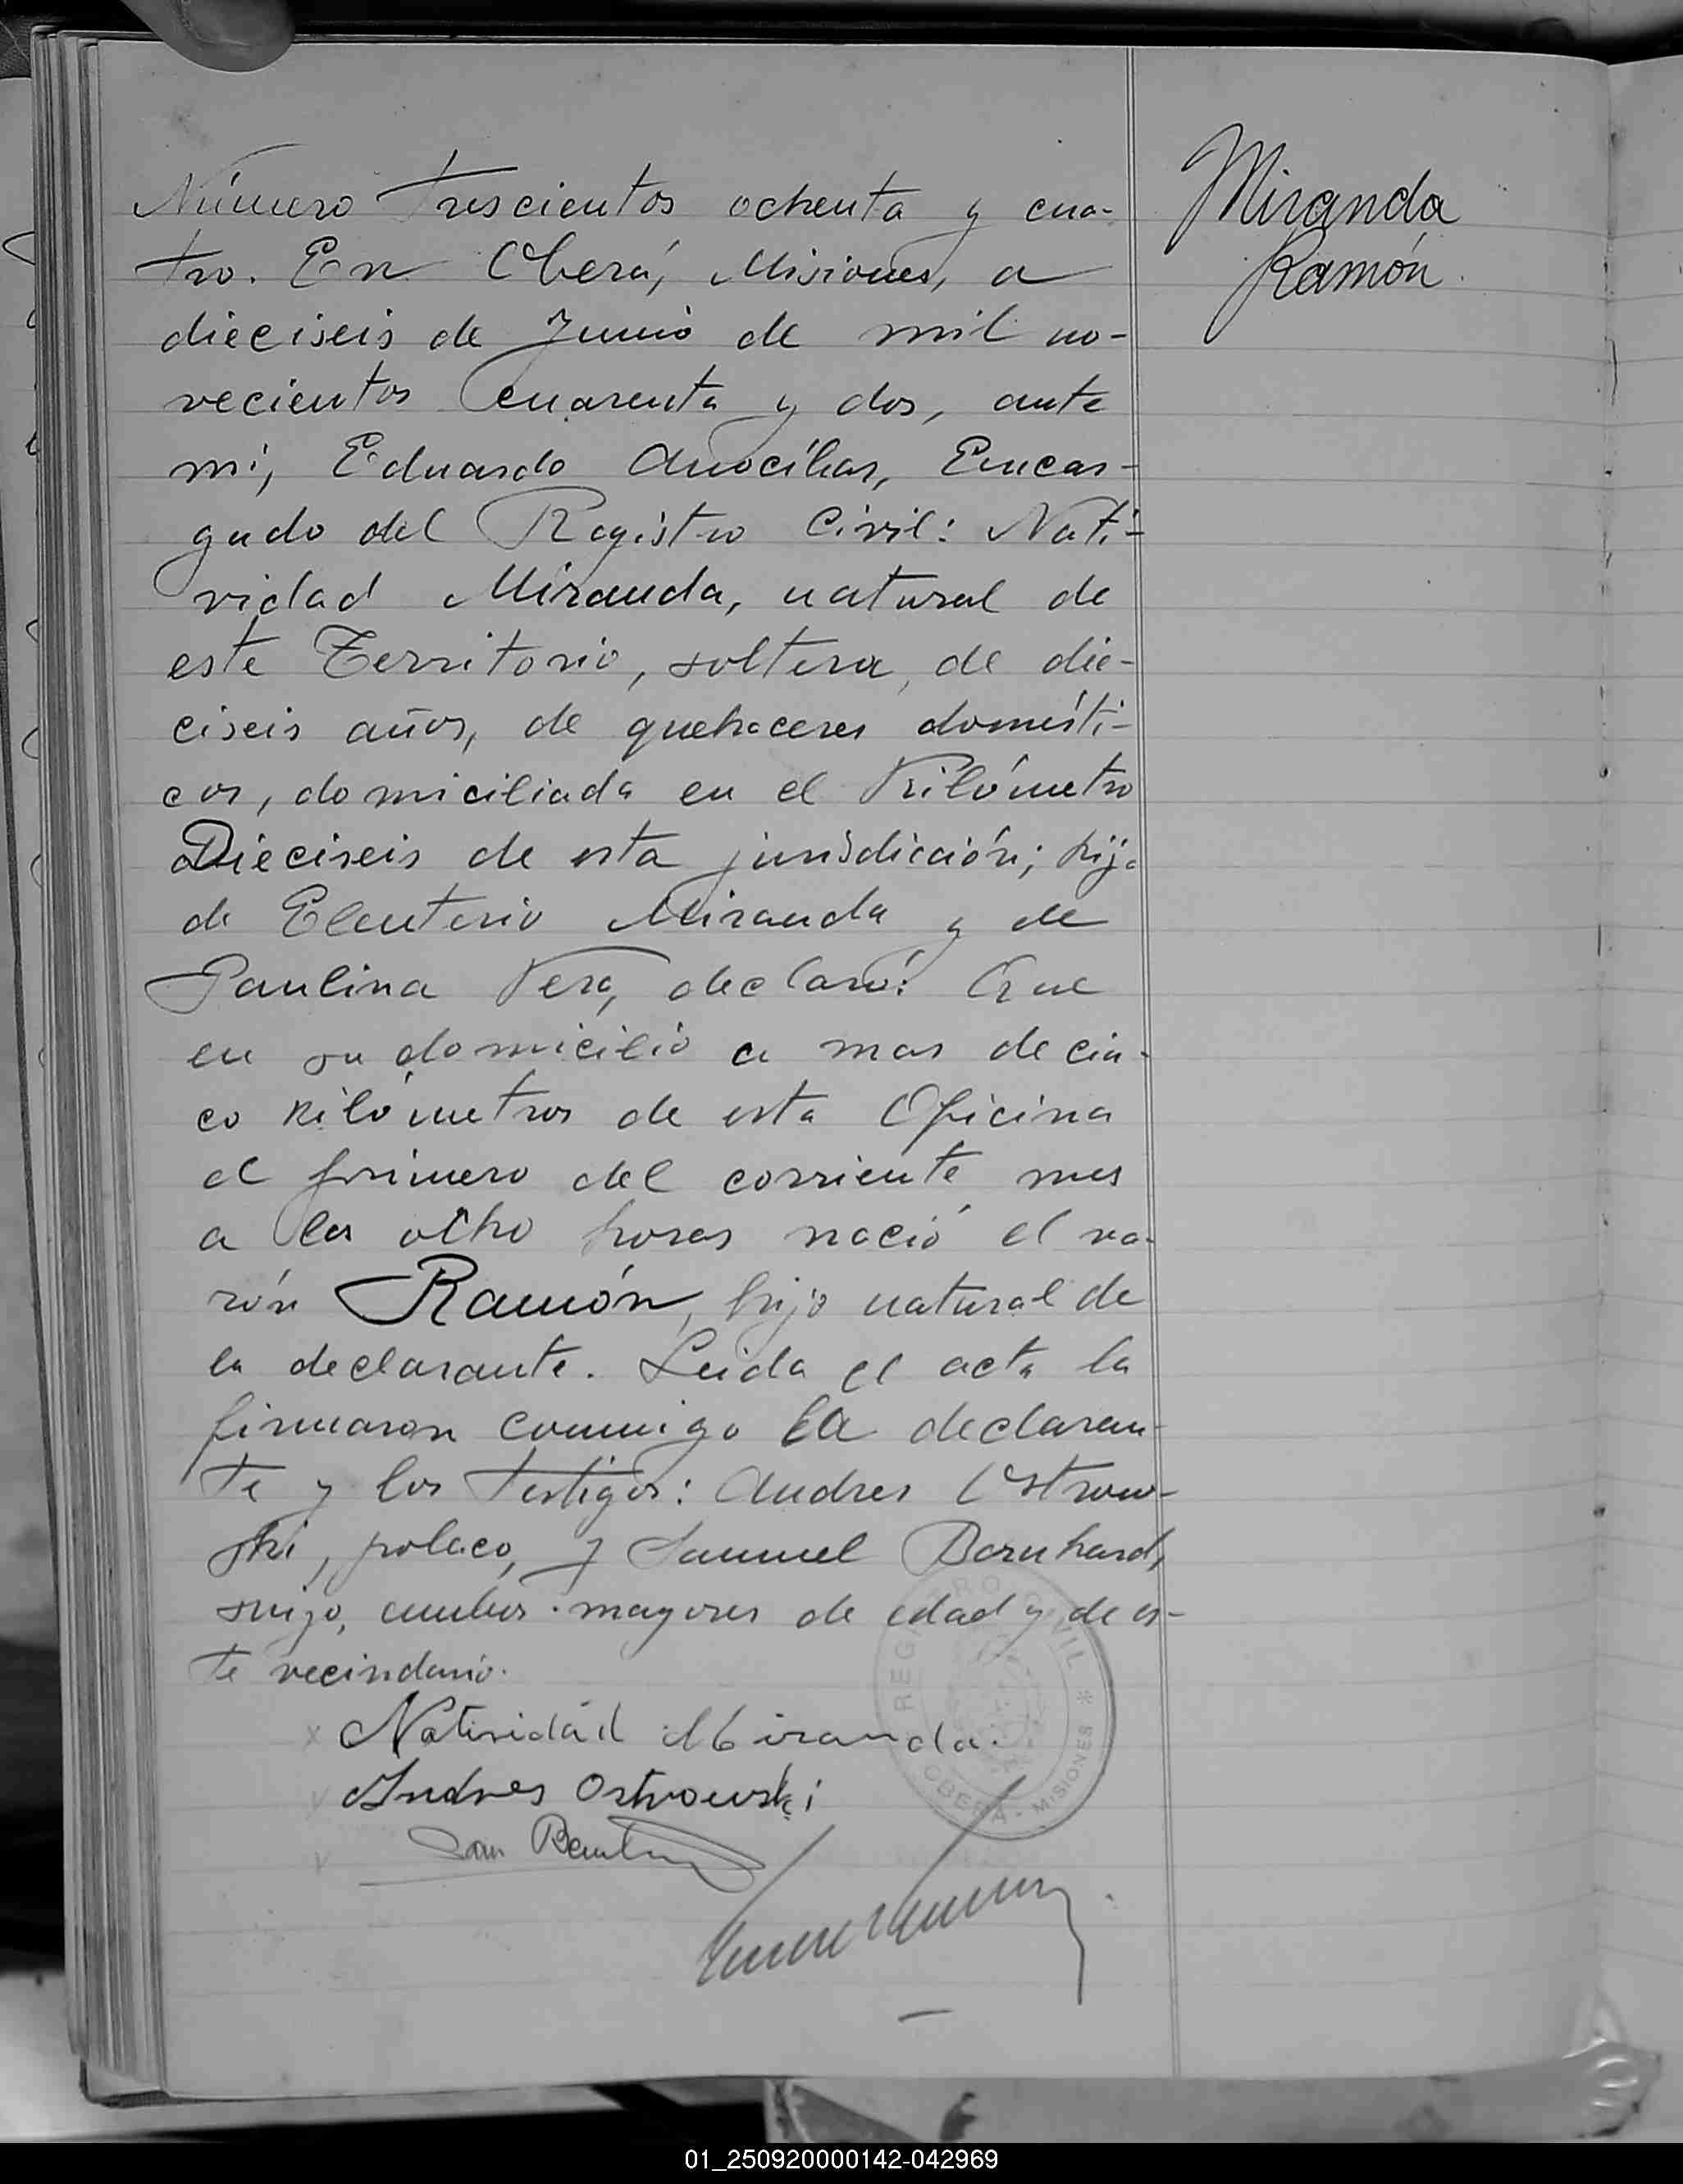 Número trescientos ochenta y cua-
tro. En Oberá, Misiones, a
dieciseis de Junio de mil no-
vecientos cuarenta y dos, ante
mi, Eduardo Anocíbar, Encar-
gado del Registro Civil: Nati-
vidad Miranda, natural de
este Territorio, soltera, de die-
ciseis años, de quehaceres domésti-
cos, domiciliada en el Kilómetro
Dieciseis de esta jurisdicción; hija
de Eleuterio Miranda y de
Paulina Vera, declaró: Que
en su domicilio a mas de cin-
co kilómetros de esta Oficina
el primero del corriente mes
a las ocho horas nació el va-
rón Ramón, hijo natural de
la declarante. Leida el acta la
firmaron conmigo la declaran-
te y los testigos: Andres Ostrow-
ski, polaco, y Samuel Bernhard,
suizo, ambos mayores de edad y de es-
te vecindario.
x Natividad Miranda.
Andres Ostrowski
Sam
Miranda
Ramón
REGISTRO CIVIL * OBERÁ - MISIONES
01_250920000142-042969